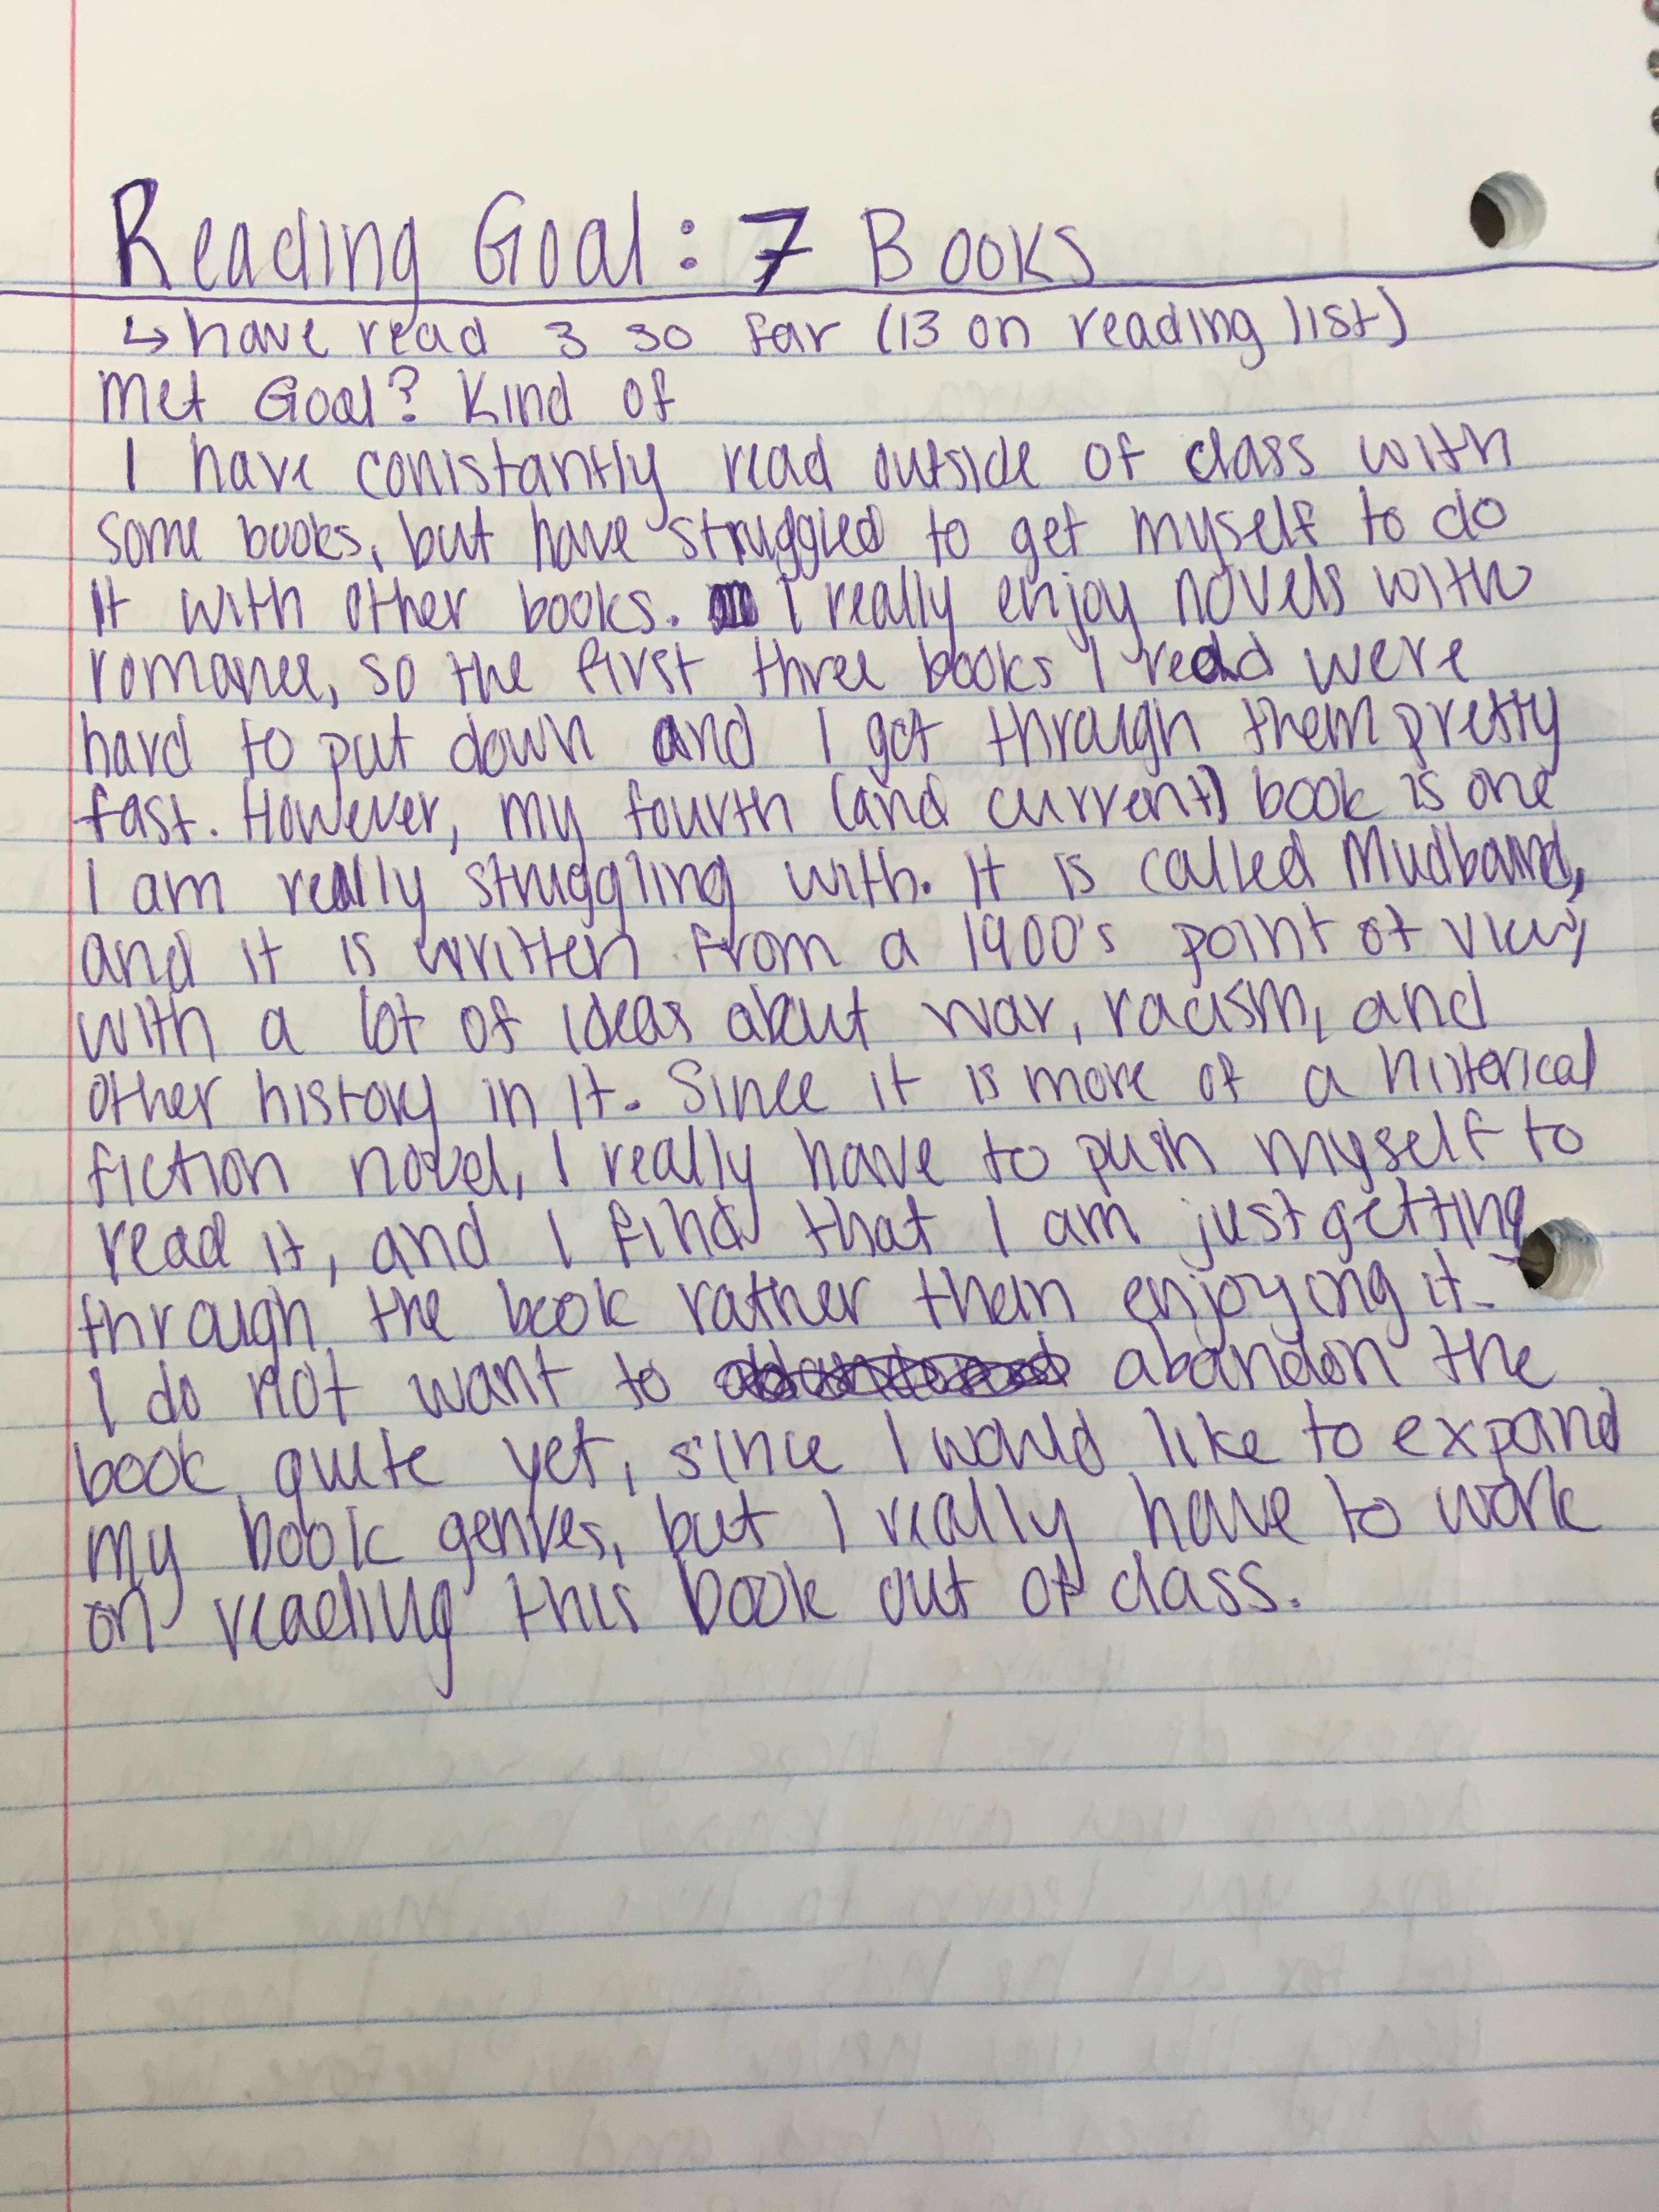 Reading Goal: 7 Books
↳ have read 3 so far (13 on reading list)
Met Goal? Kind of
I have conistantly read outside of class with
some books, but have struggled to get myself to do
it with other books. I really enjoy novels with
romance, so the first three books I read were
hard to put down and I got through them pretty
fast. However, my fourth (and current) book is one
I am really struggling with. It is called Mudbound,
and it is written from a 1900's point of view,
with a lot of ideas about war, racism, and
other history in it. Since it is more of a historical
fiction novel, I really have to push myself to
read it, and I find that I am just getting
through the book rather than enjoying it.
I do not want to abandon the
book quite yet, since I would like to expand
my book genres, but I really have to work
on reading this book out of class.